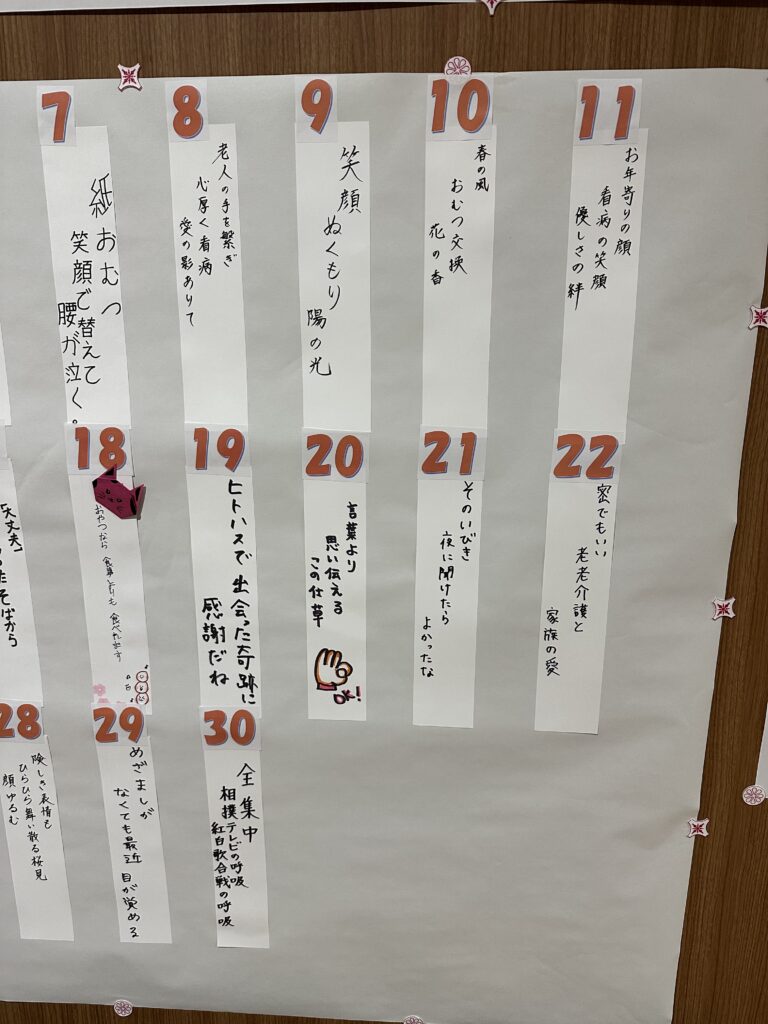 7
紙おむつ
笑顔で替えて
腰が泣く。
8
老人の手を繋ぎ
心厚く看病
愛の影ありて
9
笑顔
ぬくもり
陽の光
10
春の風
おむつ交換
花の香
11
お年寄りの顔
看病の笑顔
優しさの絆
「大丈夫」
ったそばから
18
おやつなら 食事よりも 食べれます
19
ヒトハスで 出会った奇跡に
感謝だね
20
言葉より
思い伝える
この仕草
OK!
21
そのいびき
夜に聞けたら
よかったな
22
密でもいい
老老介護と
家族の愛
28
険しき表情も
ひらひら舞い散る桜見
顔ゆるむ
29
めざましが
なくても最近
目が覚める
30
全集中
相撲テレビの呼吸
紅白歌合戦の呼吸